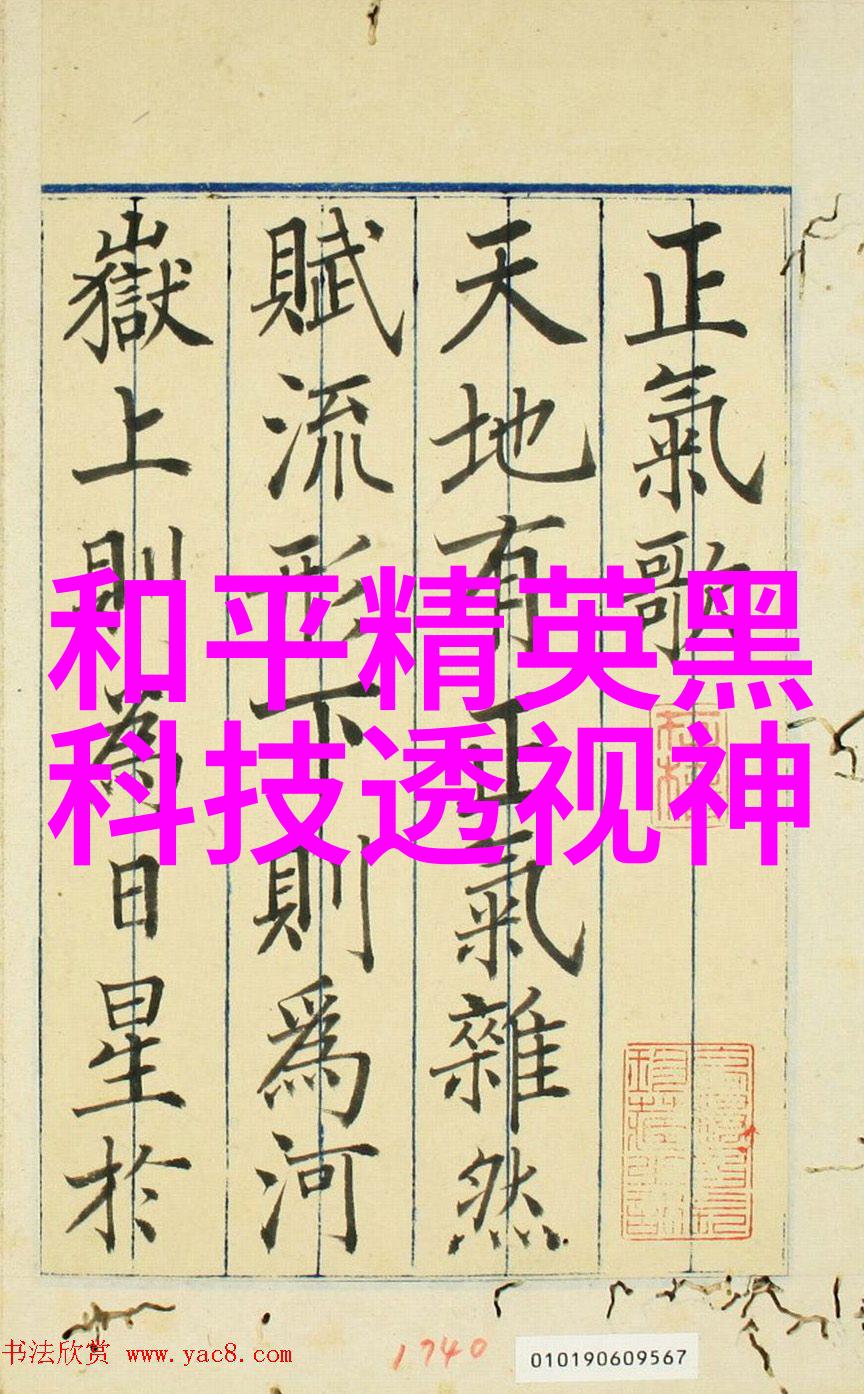 正氣歌
天地有正氣雜然
賦流形下則爲河
嶽上則為日星於
和平精英黑
科技透视神
书法欣赏 www.yac8.com
1740
010190609567